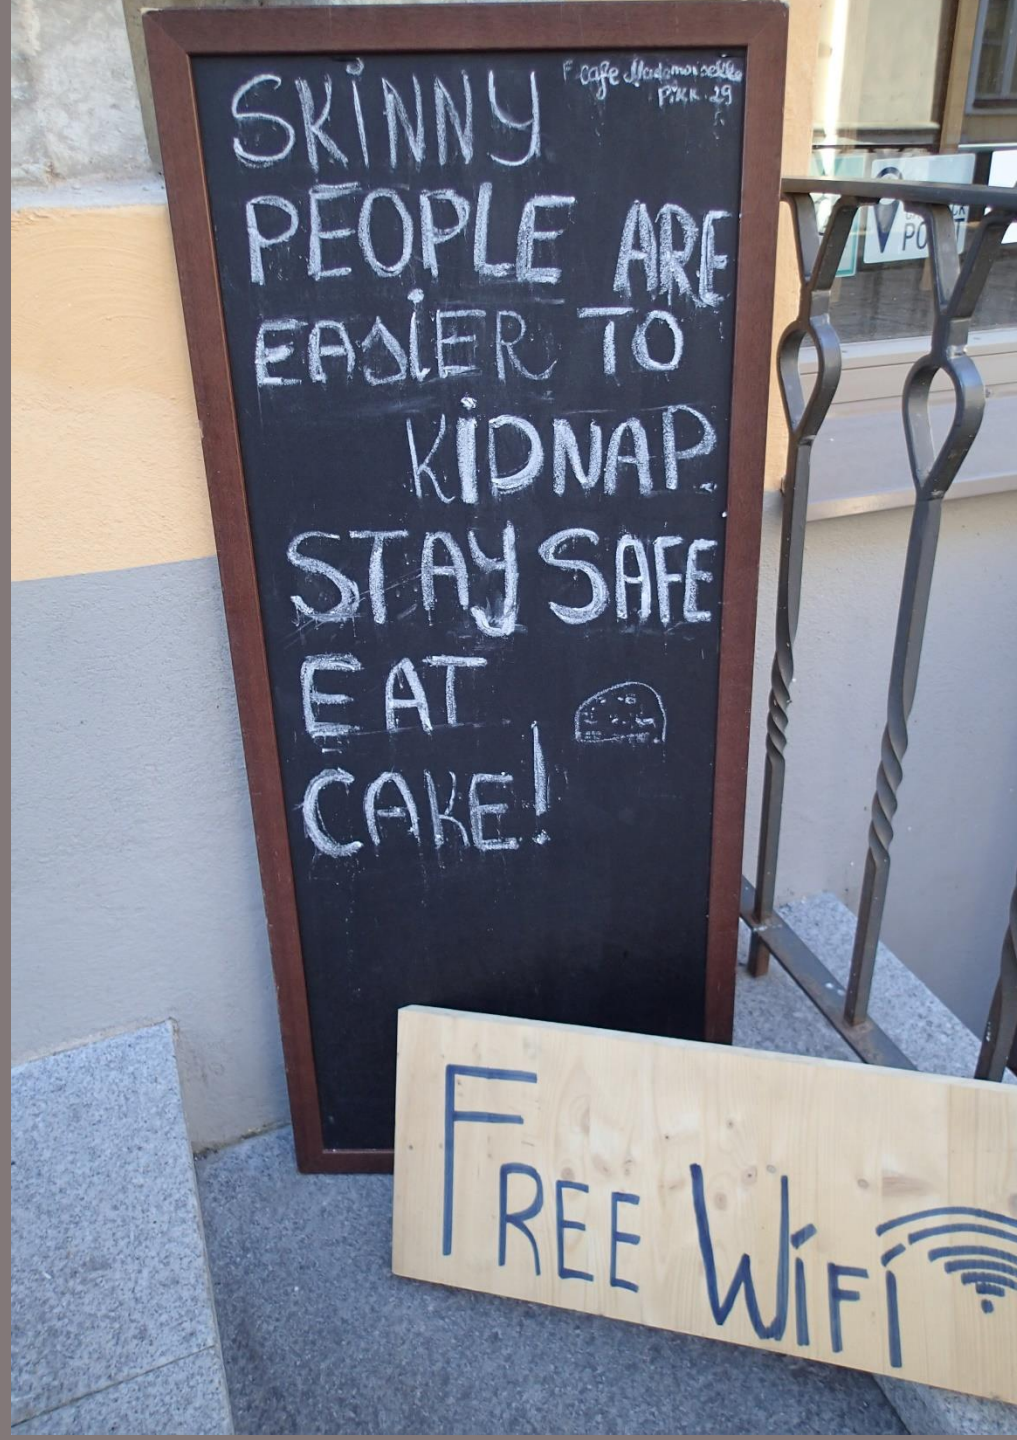 SKiNNY
F. cafe Mademoiselle
Pikk 29
PEOPLE ARE
EASiER TO
KiDNAP.
STAY SAFE
EAT
CAKE!
FREE WiFi